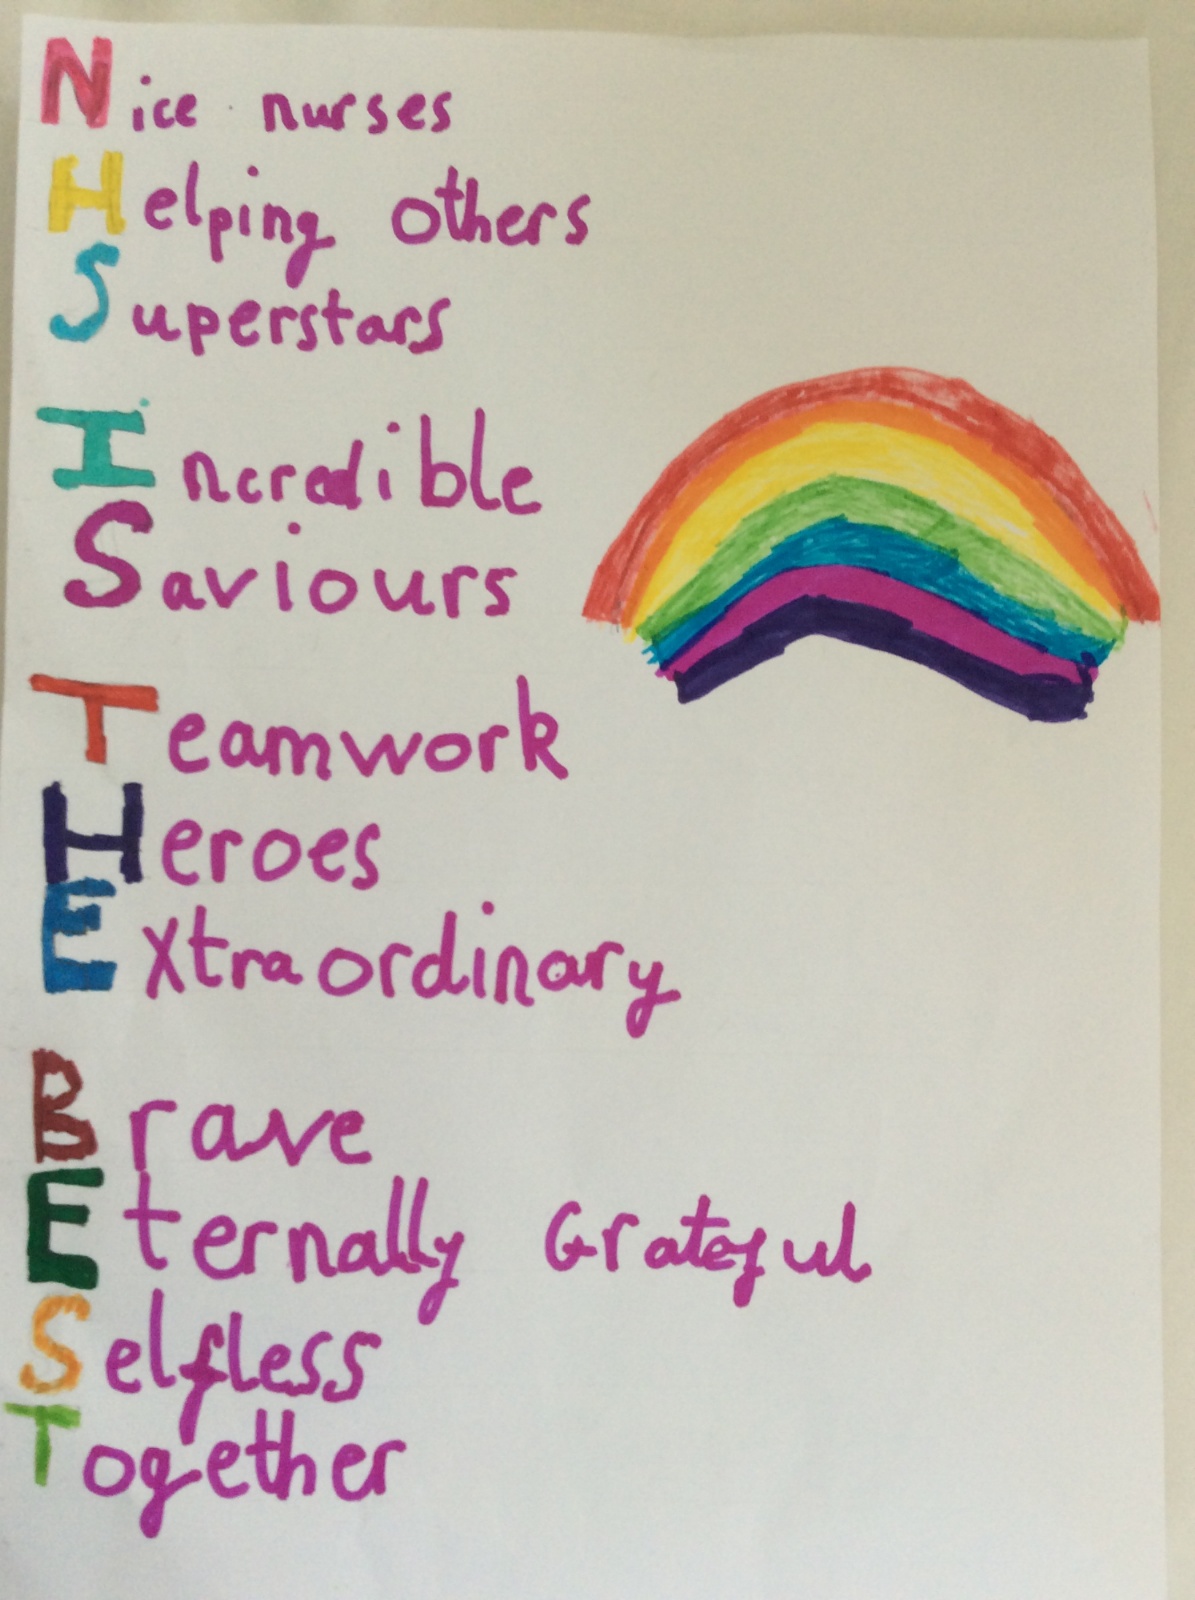 Nice nurses
Helping others
Superstars
Incredible
Saviours
Teamwork
Heroes
Extraordinary
Brave
Eternally Grateful
Selfless
Together